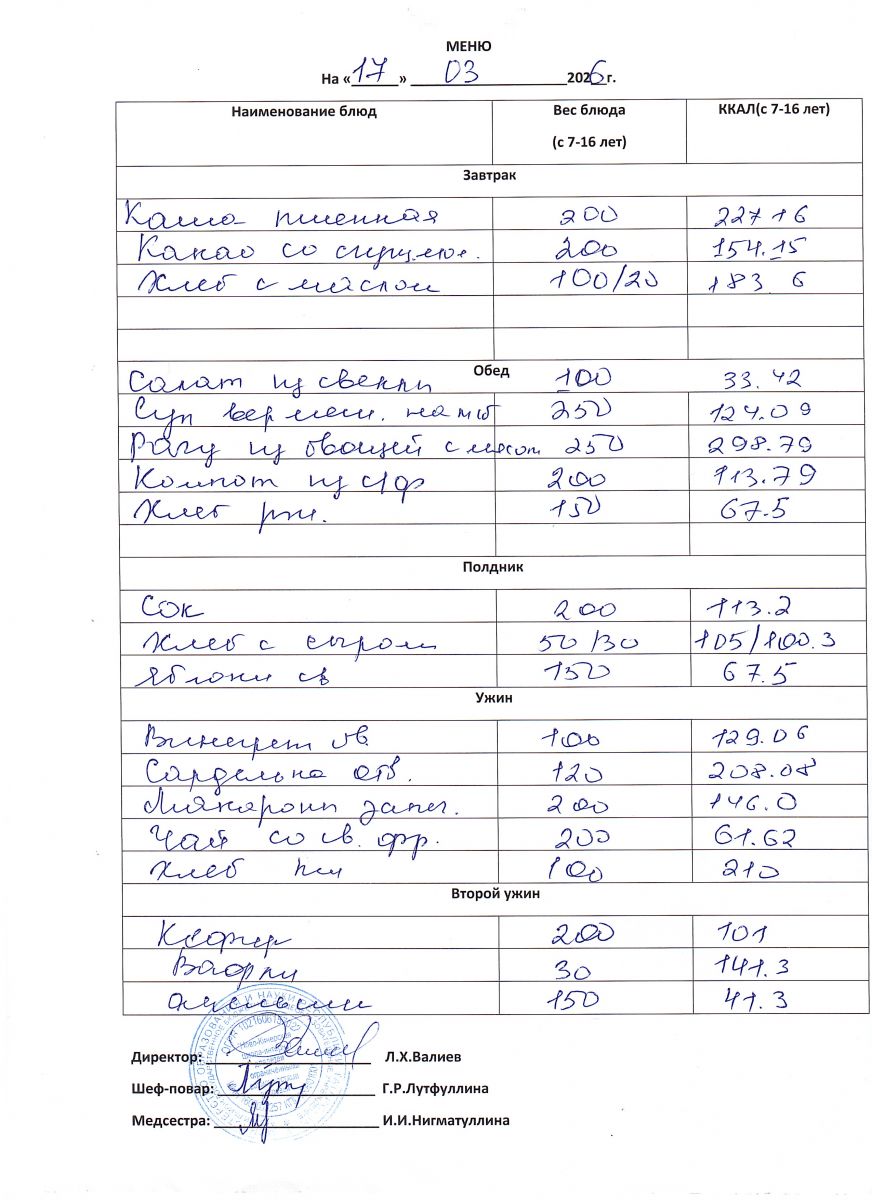 МЕНЮ
На «17» 03 2026г.
Наименование блюд Вес блюда (с 7-16 лет) ККАЛ(с 7-16 лет)
Завтрак
Каша пшенная 200 227 16
Какао со сгущ.мол. 200 154.15
Хлеб с маслом 100/20 183 6
Обед
Салат из свеклы 100 33.42
Суп вермеш. на мб 250 124.09
Рагу из овощей с мясом 250 298.79
Компот из с/ф 200 113.79
Хлеб рж. 150 67.5
Полдник
Сок 200 113.2
Хлеб с сыром 50/30 105/100.3
Яблоки св 150 67.5
Ужин
Винегрет ов. 100 129.06
Сарделька отв. 120 208.08
Макароны запеч. 200 146.0
Чай со св. фр. 200 61.62
Хлеб пш 100 210
Второй ужин
Кефир 200 101
Вафли 30 141.3
апельсин 150 41.3
Директор: Л.Х.Валиев
Шеф-повар: Г.Р.Лутфуллина
Медсестра: И.И.Нигматуллина